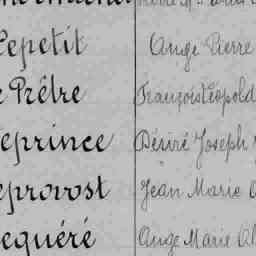 Lepetit Ange Pierre
Prêtre François Léopold
eprince Désiré Joseph
eprovost Jean Marie
equéré Ange Marie Al